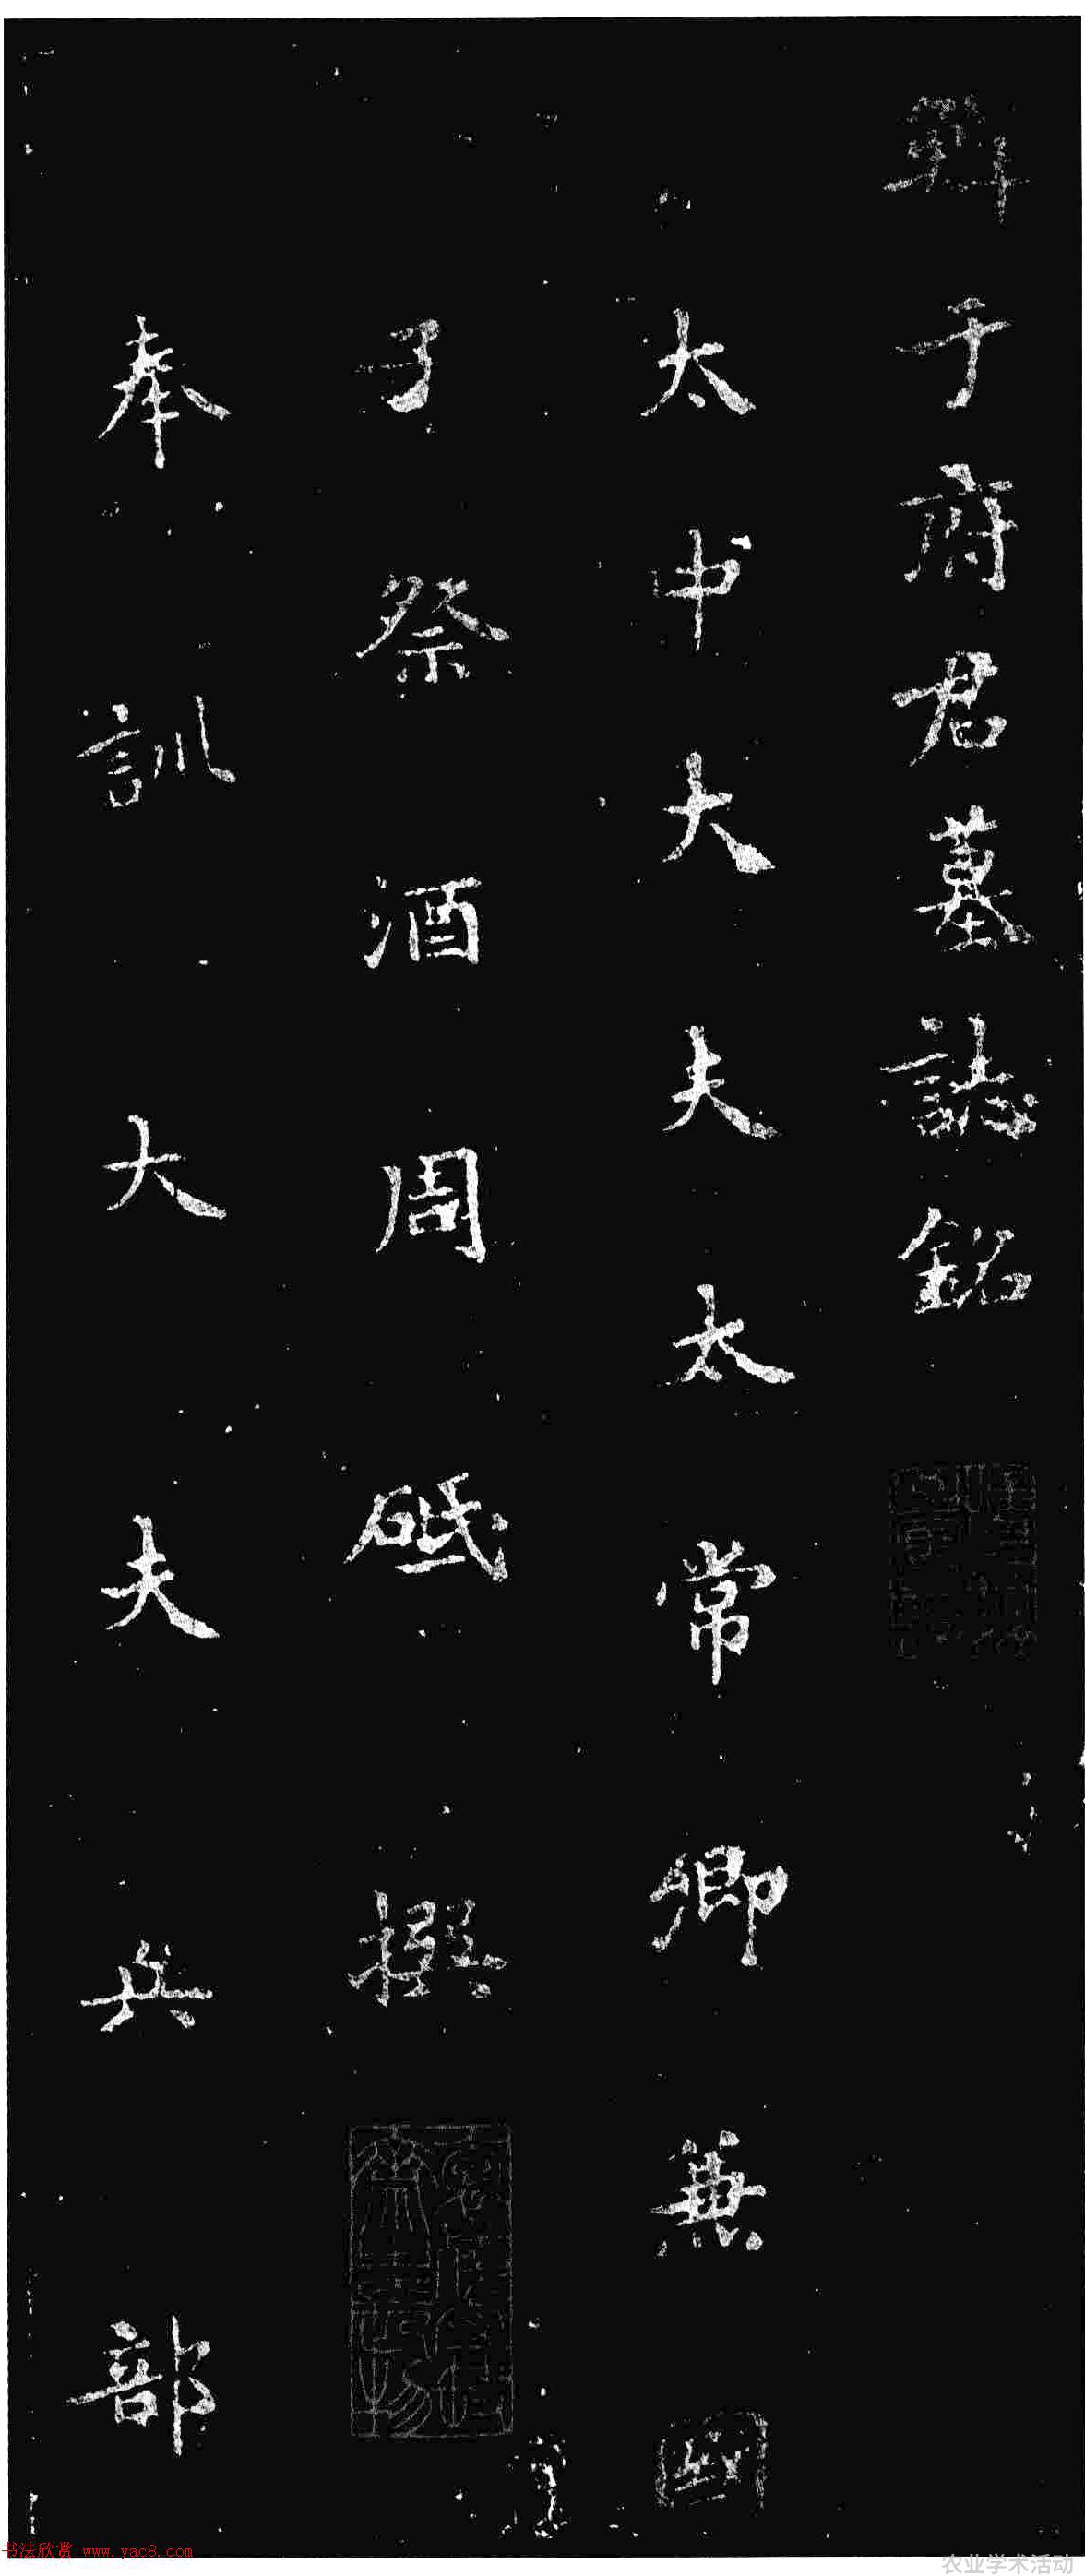 鮮于府君墓誌銘
太中大夫太常卿兼國
子祭酒周砥撰
奉訓大夫兵部
书法欣赏 www.yac8.com
农业学术活动